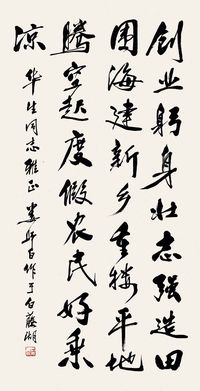 创业躬身壮志强造田
围海建新乡重楼平地
腾空起度假农民好乘
凉
华生同志雅正 娄师白作于白藤湖